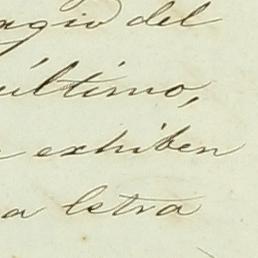 agio del
último,
exhiben
a letra